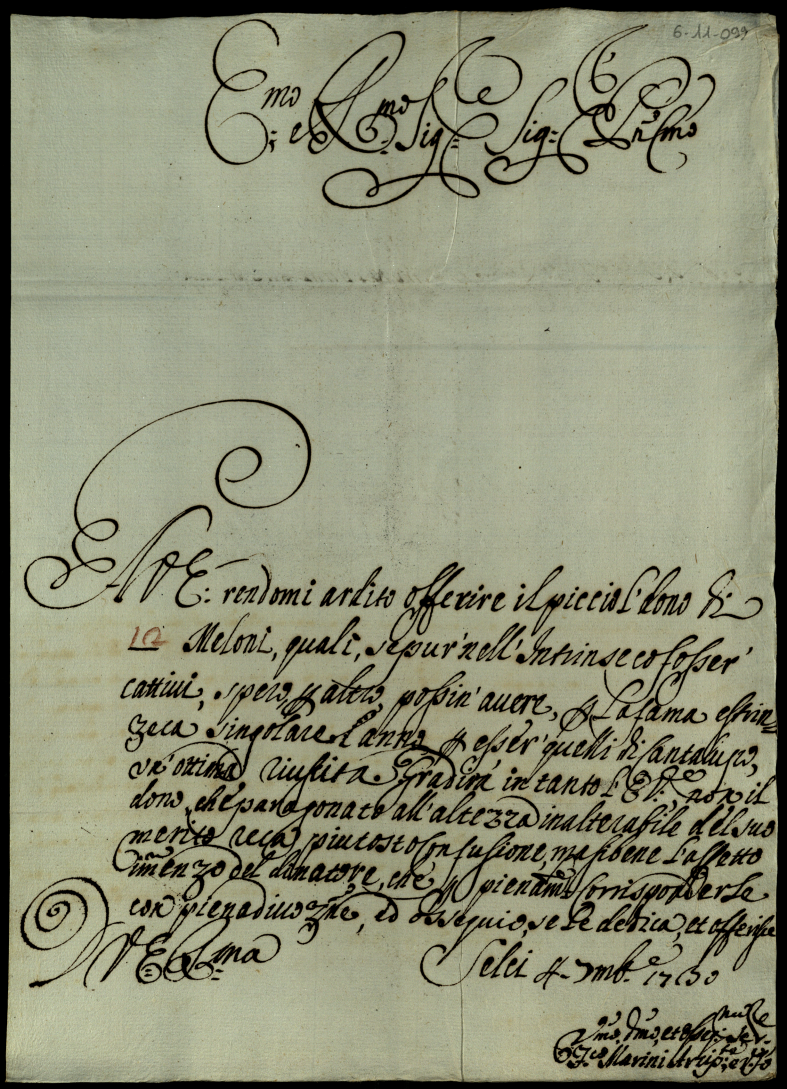 6-11-099
Emo: e Rmo Sig:re Sig:r P̃ron Cmo
All' V. E: rendomi ardito offerire il picciol' dono di
12 Meloni, quali, se pur' nell' Intrinseco fosser'
cattivi, spero, p altro, possin' avere, p la fama estrin=
zeca singolare l'anno p esser' quelli di Cantalupo,
un' ottima riuscita. Gradirà in tanto l'E. V. non il
dono, che paragonato all' altezza inalterabile del suo
merito reca piutosto confusione, ma si bene l'affetto
im̃enzo del donatore, che p pienam.te corrisponderle
con piena divoz.ne, ed ossequio, se le dedica, et offerisce
D V. E. R.ma
Selci 4. 7mb.e 1730
Umo, Dmo, et Osseq.mo Ser.re
Marini Arcip.te